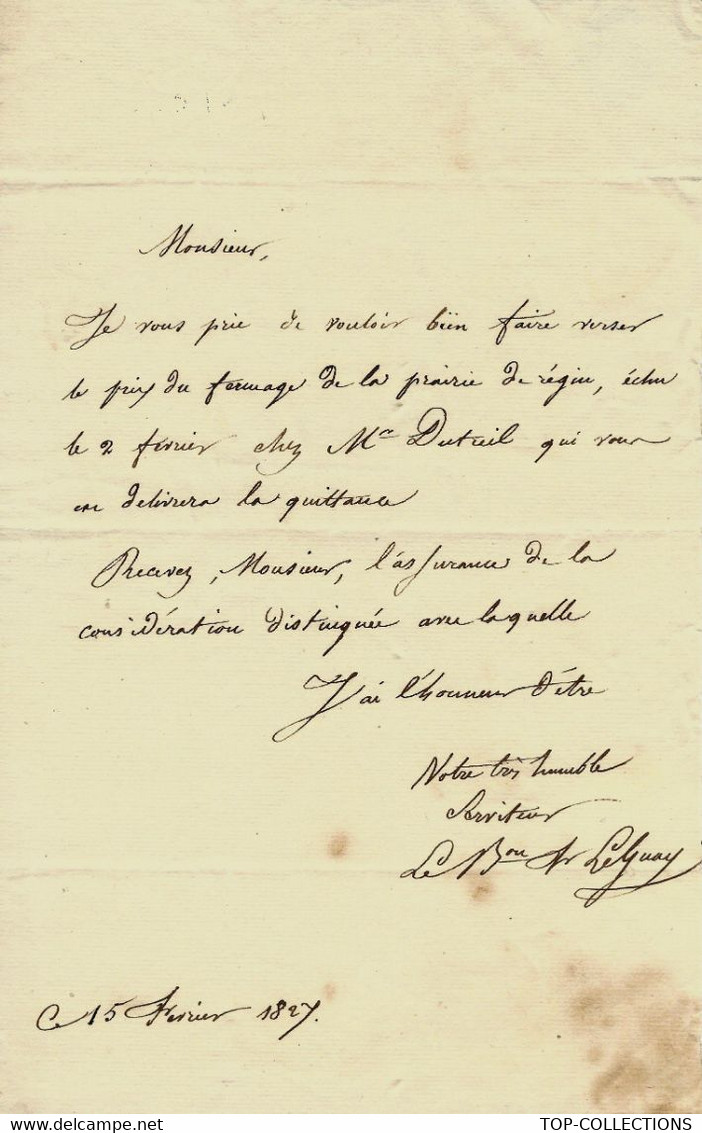 Monsieur,
Je vous prie de vouloir bien faire verser
le prix du fermage de la prairie de régin, échu
le 2 fevrier chez Mr Duteuil qui vous
en delivrera la quittance
Recevez, Monsieur, l'assurance de la
considération distinguée avec laquelle
J'ai l'honneur d'être
Votre très humble
Serviteur
Le Bon LeGuay
Ce 15 Fevrier 1827.
TOP-COLLECTIONS